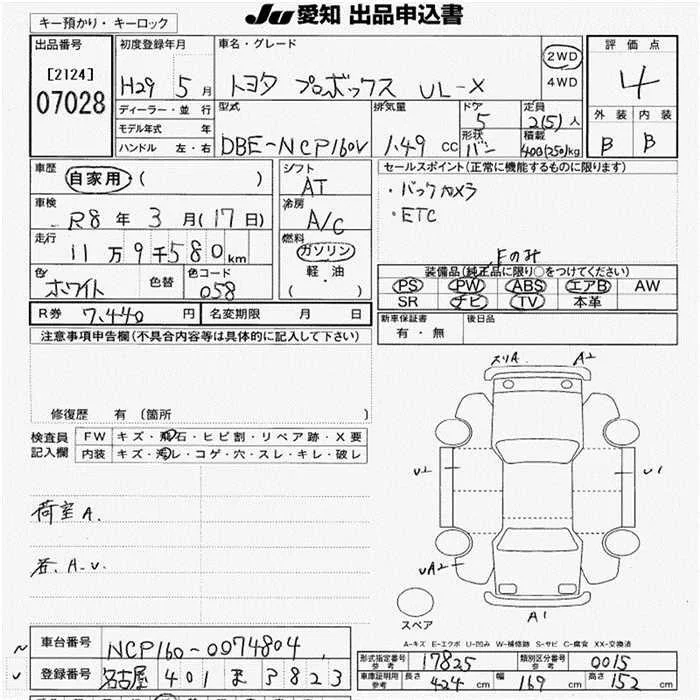 JU 愛知 出品申込書
キー預かり・キーロック
出品番号
[2124]
07028
初度登録年月
H29 5月
ディーラー・並行
モデル年式 年
ハンドル 左・右
車名・グレード
トヨタ プロボックス UL-X
2WD
4WD
型式
DBE-NCP160V
排気量
1.49 cc
ドア
5
形状
バン
定員
2(5)人
積載
400(250)kg
評価点
4
外装 内装
B B
車歴
自家用・( )
車検
R8年 3月(17日)
走行
11万9千580km
色
ホワイト
色替
色コード
058
シフト
AT
冷房
A/C
燃料
ガソリン
軽・油
( )
R券 7,440円
名変期限 月 日
セールスポイント(正常に機能するものに限ります)
・バックカメラ
・ETC
Fのみ
装備品(純正品に限り○をつけてください)
PS PW ABS エアB AW
SR ナビ TV 本革
新車保証書
有・無
後日品
注意事項申告欄(不具合内容等は具体的に記入して下さい)
修復歴 有 (箇所 )
検査員
記入欄
FW キズ・飛石・ヒビ割・リペア跡・X要
内装 キズ・汚レ・コゲ・穴・スレ・キレ・破レ
荷室 A.
A.U.
スリA A2
U2 U1
UA2
A1
スペア
A-キズ E-エクボ U-凹み W-補修跡 S-サビ C-腐食 XX-交換済
車台番号 NCP160-0074804
登録番号 名古屋 401 ま 3823
形式指定番号
参考
17825
類別区分番号
参考
0015
車庫証明用
参考
長さ 424cm 幅 169cm 高さ 152cm